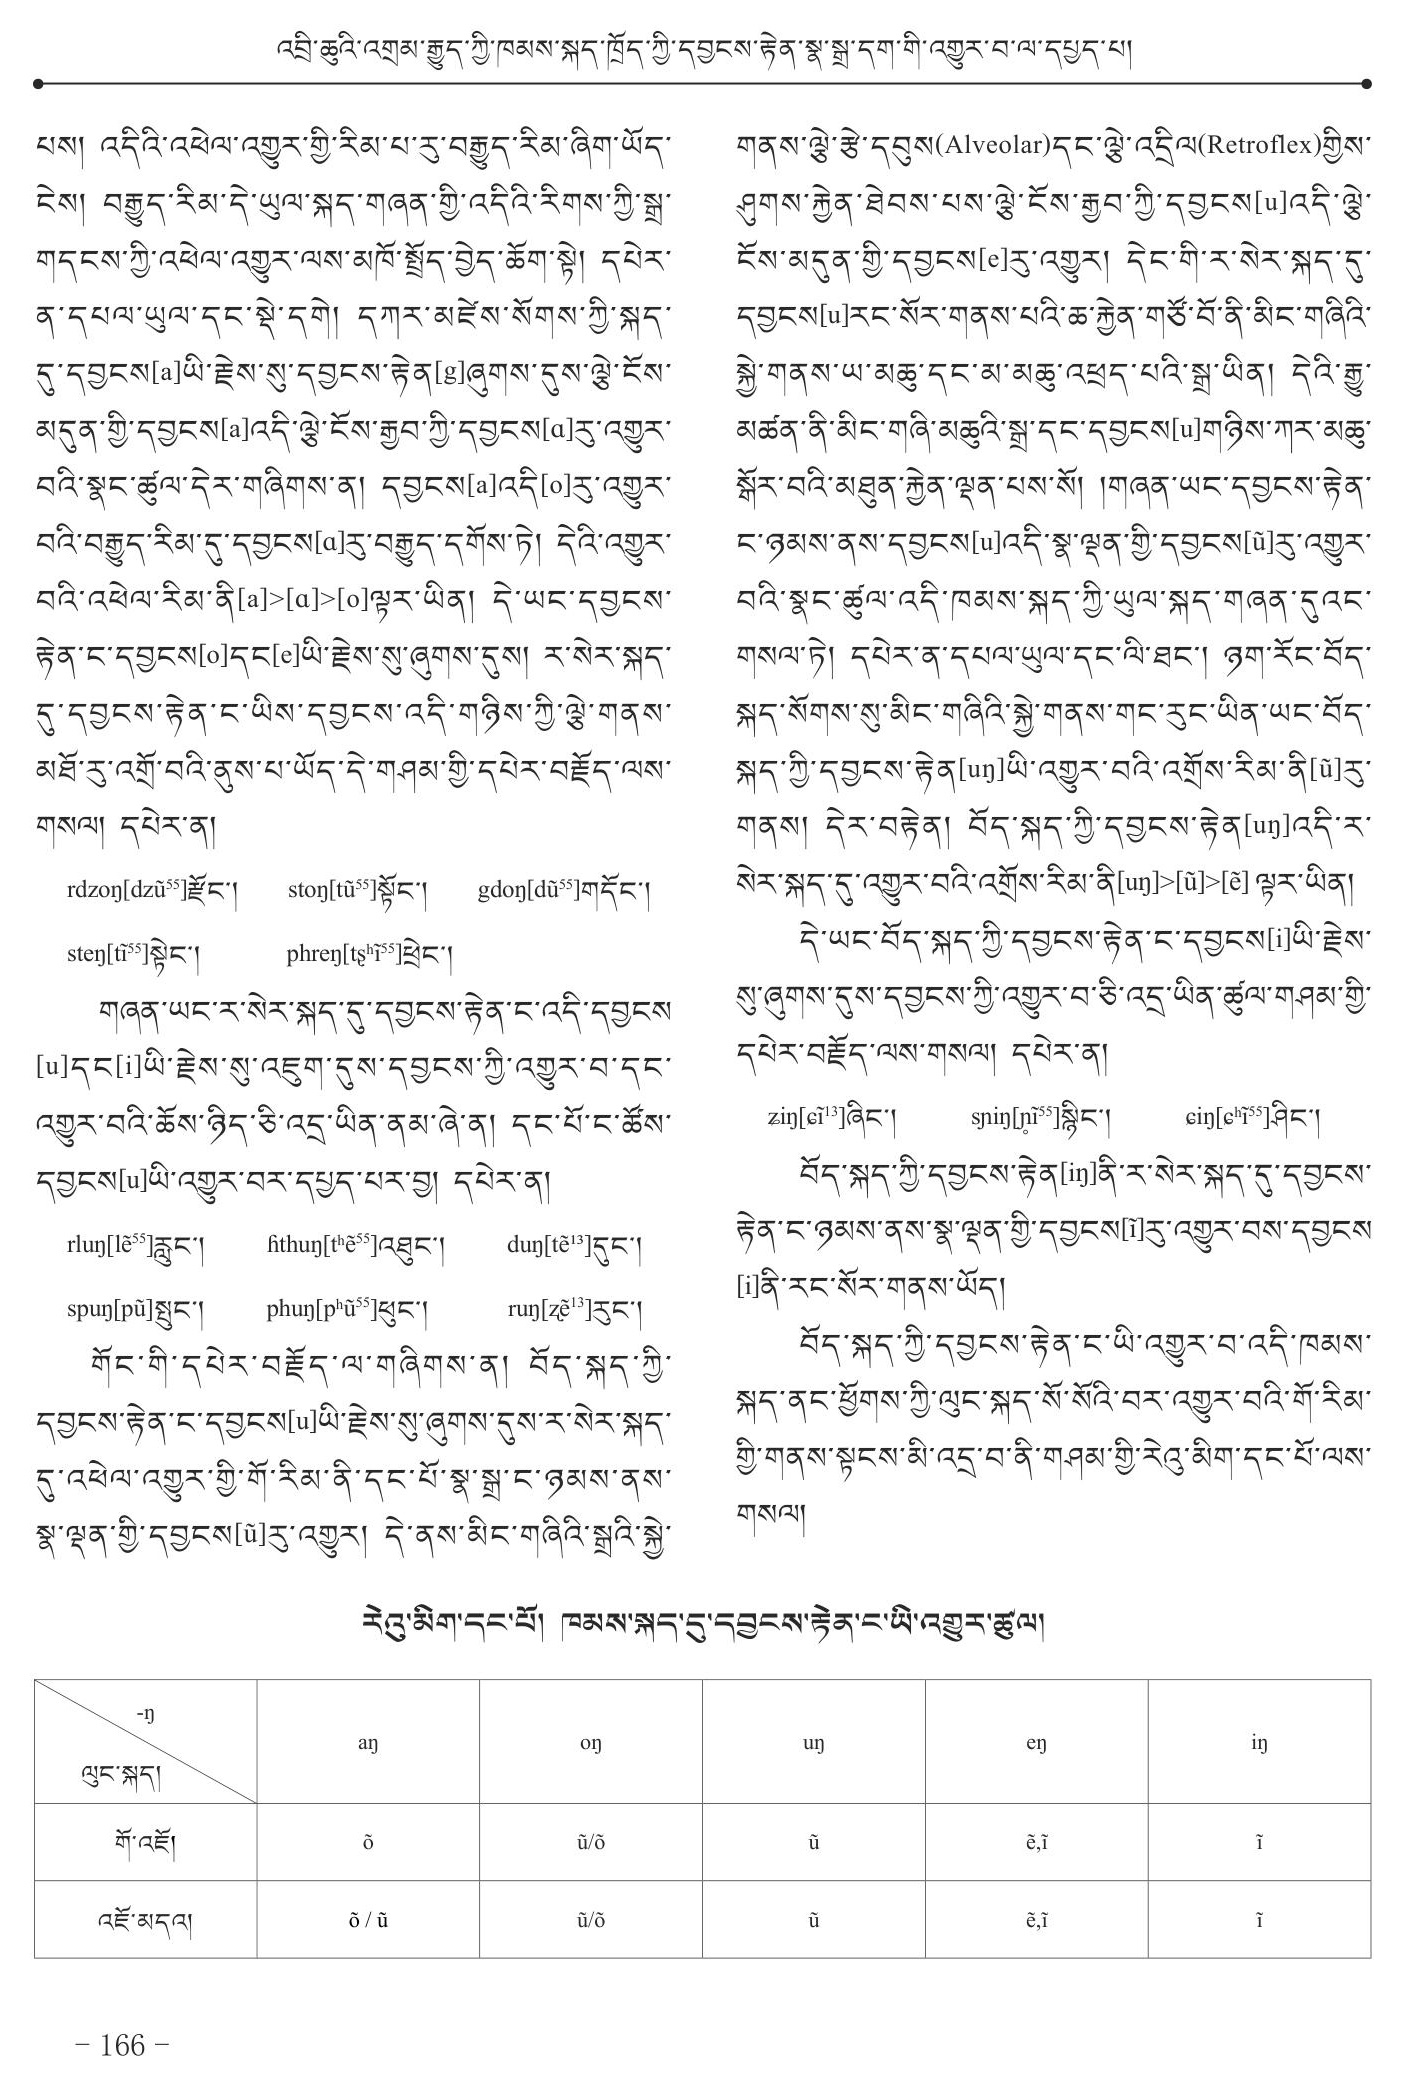 འབྲི་ཆུའི་འགྲམ་རྒྱུད་ཀྱི་ཁམས་སྐད་ཁྲོད་ཀྱི་དབྱངས་རྟེན་སྣ་སྒྲ་དག་གི་འགྱུར་བ་ལ་དཔྱད་པ།
པས། འདིའི་འཕེལ་འགྱུར་གྱི་རིམ་པ་རུ་བརྒྱུད་རིམ་ཞིག་ཡོད་
ངེས། བརྒྱུད་རིམ་དེ་ཡུལ་སྐད་གཞན་གྱི་འདིའི་རིགས་ཀྱི་སྒྲ་
གདངས་ཀྱི་འཕེལ་འགྱུར་ལས་མཁོ་སྤྲོད་བྱེད་ཆོག་སྟེ། དཔེར་
ན་དཔལ་ཡུལ་དང་སྡེ་དགེ། དཀར་མཛེས་སོགས་ཀྱི་སྐད་
དུ་དབྱངས[a]ཡི་རྗེས་སུ་དབྱངས་རྟེན[g]ཞུགས་དུས་ལྕེ་ངོས་
མདུན་གྱི་དབྱངས[a]འདི་ལྕེ་ངོས་རྒྱབ་ཀྱི་དབྱངས[ɑ]རུ་འགྱུར་
བའི་སྣང་ཚུལ་དེར་གཞིགས་ན། དབྱངས[a]འདི[o]རུ་འགྱུར་
བའི་བརྒྱུད་རིམ་དུ་དབྱངས[ɑ]རུ་བརྒྱུད་དགོས་ཏེ། དེའི་འགྱུར་
བའི་འཕེལ་རིམ་ནི[a]>[ɑ]>[o]ལྟར་ཡིན། དེ་ཡང་དབྱངས་
རྟེན་ང་དབྱངས[o]དང[e]ཡི་རྗེས་སུ་ཞུགས་དུས། ར་སེར་སྐད་
དུ་དབྱངས་རྟེན་ང་ཡིས་དབྱངས་འདི་གཉིས་ཀྱི་ལྕེ་གནས་
མཐོ་རུ་འགྲོ་བའི་ནུས་པ་ཡོད་དེ་གཤམ་གྱི་དཔེར་བརྗོད་ལས་
གསལ། དཔེར་ན།
rdzoŋ[dzũ⁵⁵]རྫོང་། stoŋ[tũ⁵⁵]སྟོང་། gdoŋ[dũ⁵⁵]གདོང་།
steŋ[tĩ⁵⁵]སྟེང་། phreŋ[tʂʰĩ⁵⁵]ཕྲེང་།
གཞན་ཡང་ར་སེར་སྐད་དུ་དབྱངས་རྟེན་ང་འདི་དབྱངས
[u]དང[i]ཡི་རྗེས་སུ་འཇུག་དུས་དབྱངས་ཀྱི་འགྱུར་བ་དང་
འགྱུར་བའི་ཆོས་ཉིད་ཅི་འདྲ་ཡིན་ནམ་ཞེ་ན། དང་པོ་ང་ཚོས་
དབྱངས[u]ཡི་འགྱུར་བར་དཔྱད་པར་བྱ། དཔེར་ན།
rluŋ[lẽ⁵⁵]རླུང་། ɦthuŋ[tʰẽ⁵⁵]འཐུང་། duŋ[tẽ¹³]དུང་།
spuŋ[pũ]སྤུང་། phuŋ[pʰũ⁵⁵]ཕུང་། ruŋ[ʐẽ¹³]རུང་།
གོང་གི་དཔེར་བརྗོད་ལ་གཞིགས་ན། བོད་སྐད་ཀྱི་
དབྱངས་རྟེན་ང་དབྱངས[u]ཡི་རྗེས་སུ་ཞུགས་དུས་ར་སེར་སྐད་
དུ་འཕེལ་འགྱུར་གྱི་གོ་རིམ་ནི་དང་པོ་སྣ་སྒྲ་ང་ཉམས་ནས་
སྣ་ལྡན་གྱི་དབྱངས[ũ]རུ་འགྱུར། དེ་ནས་མིང་གཞིའི་སྒྲའི་སྐྱེ་
གནས་ལྕེ་རྩེ་དབུས(Alveolar)དང་ལྕེ་འདྲིལ(Retroflex)གྱིས་
ཤུགས་རྐྱེན་ཐེབས་པས་ལྕེ་ངོས་རྒྱབ་ཀྱི་དབྱངས[u]འདི་ལྕེ་
ངོས་མདུན་གྱི་དབྱངས[e]རུ་འགྱུར། དེང་གི་ར་སེར་སྐད་དུ་
དབྱངས[u]རང་སོར་གནས་པའི་ཆ་རྐྱེན་གཙོ་བོ་ནི་མིང་གཞིའི་
སྐྱེ་གནས་ཡ་མཆུ་དང་མ་མཆུ་འཕྲད་པའི་སྒྲ་ཡིན། དེའི་རྒྱུ་
མཚན་ནི་མིང་གཞི་མཆུའི་སྒྲ་དང་དབྱངས[u]གཉིས་ཀར་མཆུ་
སྒོར་བའི་མཐུན་རྐྱེན་ལྡན་པས་སོ། །གཞན་ཡང་དབྱངས་རྟེན་
ང་ཉམས་ནས་དབྱངས[u]འདི་སྣ་ལྡན་གྱི་དབྱངས[ũ]རུ་འགྱུར་
བའི་སྣང་ཚུལ་འདི་ཁམས་སྐད་ཀྱི་ཡུལ་སྐད་གཞན་དུའང་
གསལ་ཏེ། དཔེར་ན་དཔལ་ཡུལ་དང་ལི་ཐང་། ཉག་རོང་བོད་
སྐད་སོགས་སུ་མིང་གཞིའི་སྐྱེ་གནས་གང་རུང་ཡིན་ཡང་བོད་
སྐད་ཀྱི་དབྱངས་རྟེན[uŋ]ཡི་འགྱུར་བའི་འགྲོས་རིམ་ནི[ũ]རུ་
གནས། དེར་བརྟེན། བོད་སྐད་ཀྱི་དབྱངས་རྟེན[uŋ]འདི་ར་
སེར་སྐད་དུ་འགྱུར་བའི་འགྲོས་རིམ་ནི[uŋ]>[ũ]>[ẽ] ལྟར་ཡིན།
དེ་ཡང་བོད་སྐད་ཀྱི་དབྱངས་རྟེན་ང་དབྱངས[i]ཡི་རྗེས་
སུ་ཞུགས་དུས་དབྱངས་ཀྱི་འགྱུར་བ་ཅི་འདྲ་ཡིན་ཚུལ་གཤམ་གྱི་
དཔེར་བརྗོད་ལས་གསལ། དཔེར་ན།
ʑiŋ[ɕĩ¹³]ཞིང་། sɲiŋ[ɲ̥ĩ⁵⁵]སྙིང་། ɕiŋ[ɕʰĩ⁵⁵]ཤིང་།
བོད་སྐད་ཀྱི་དབྱངས་རྟེན[iŋ]ནི་ར་སེར་སྐད་དུ་དབྱངས་
རྟེན་ང་ཉམས་ནས་སྣ་ལྡན་གྱི་དབྱངས[ĩ]རུ་འགྱུར་བས་དབྱངས
[i]ནི་རང་སོར་གནས་ཡོད།
བོད་སྐད་ཀྱི་དབྱངས་རྟེན་ང་ཡི་འགྱུར་བ་འདི་ཁམས་
སྐད་ནང་ཕྱོགས་ཀྱི་ལུང་སྐད་སོ་སོའི་བར་འགྱུར་བའི་གོ་རིམ་
གྱི་གནས་སྟངས་མི་འདྲ་བ་ནི་གཤམ་གྱི་རེའུ་མིག་དང་པོ་ལས་
གསལ།
རེའུ་མིག་དང་པོ། ཁམས་སྐད་དུ་དབྱངས་རྟེན་ང་ཡི་འགྱུར་ཚུལ།
-ŋ
ལུང་སྐད། aŋ oŋ uŋ eŋ iŋ
གོ་འཇོ། õ ũ/õ ũ ẽ,ĩ ĩ
འཇོ་མདའ། õ / ũ ũ/õ ũ ẽ,ĩ ĩ
– 166 –